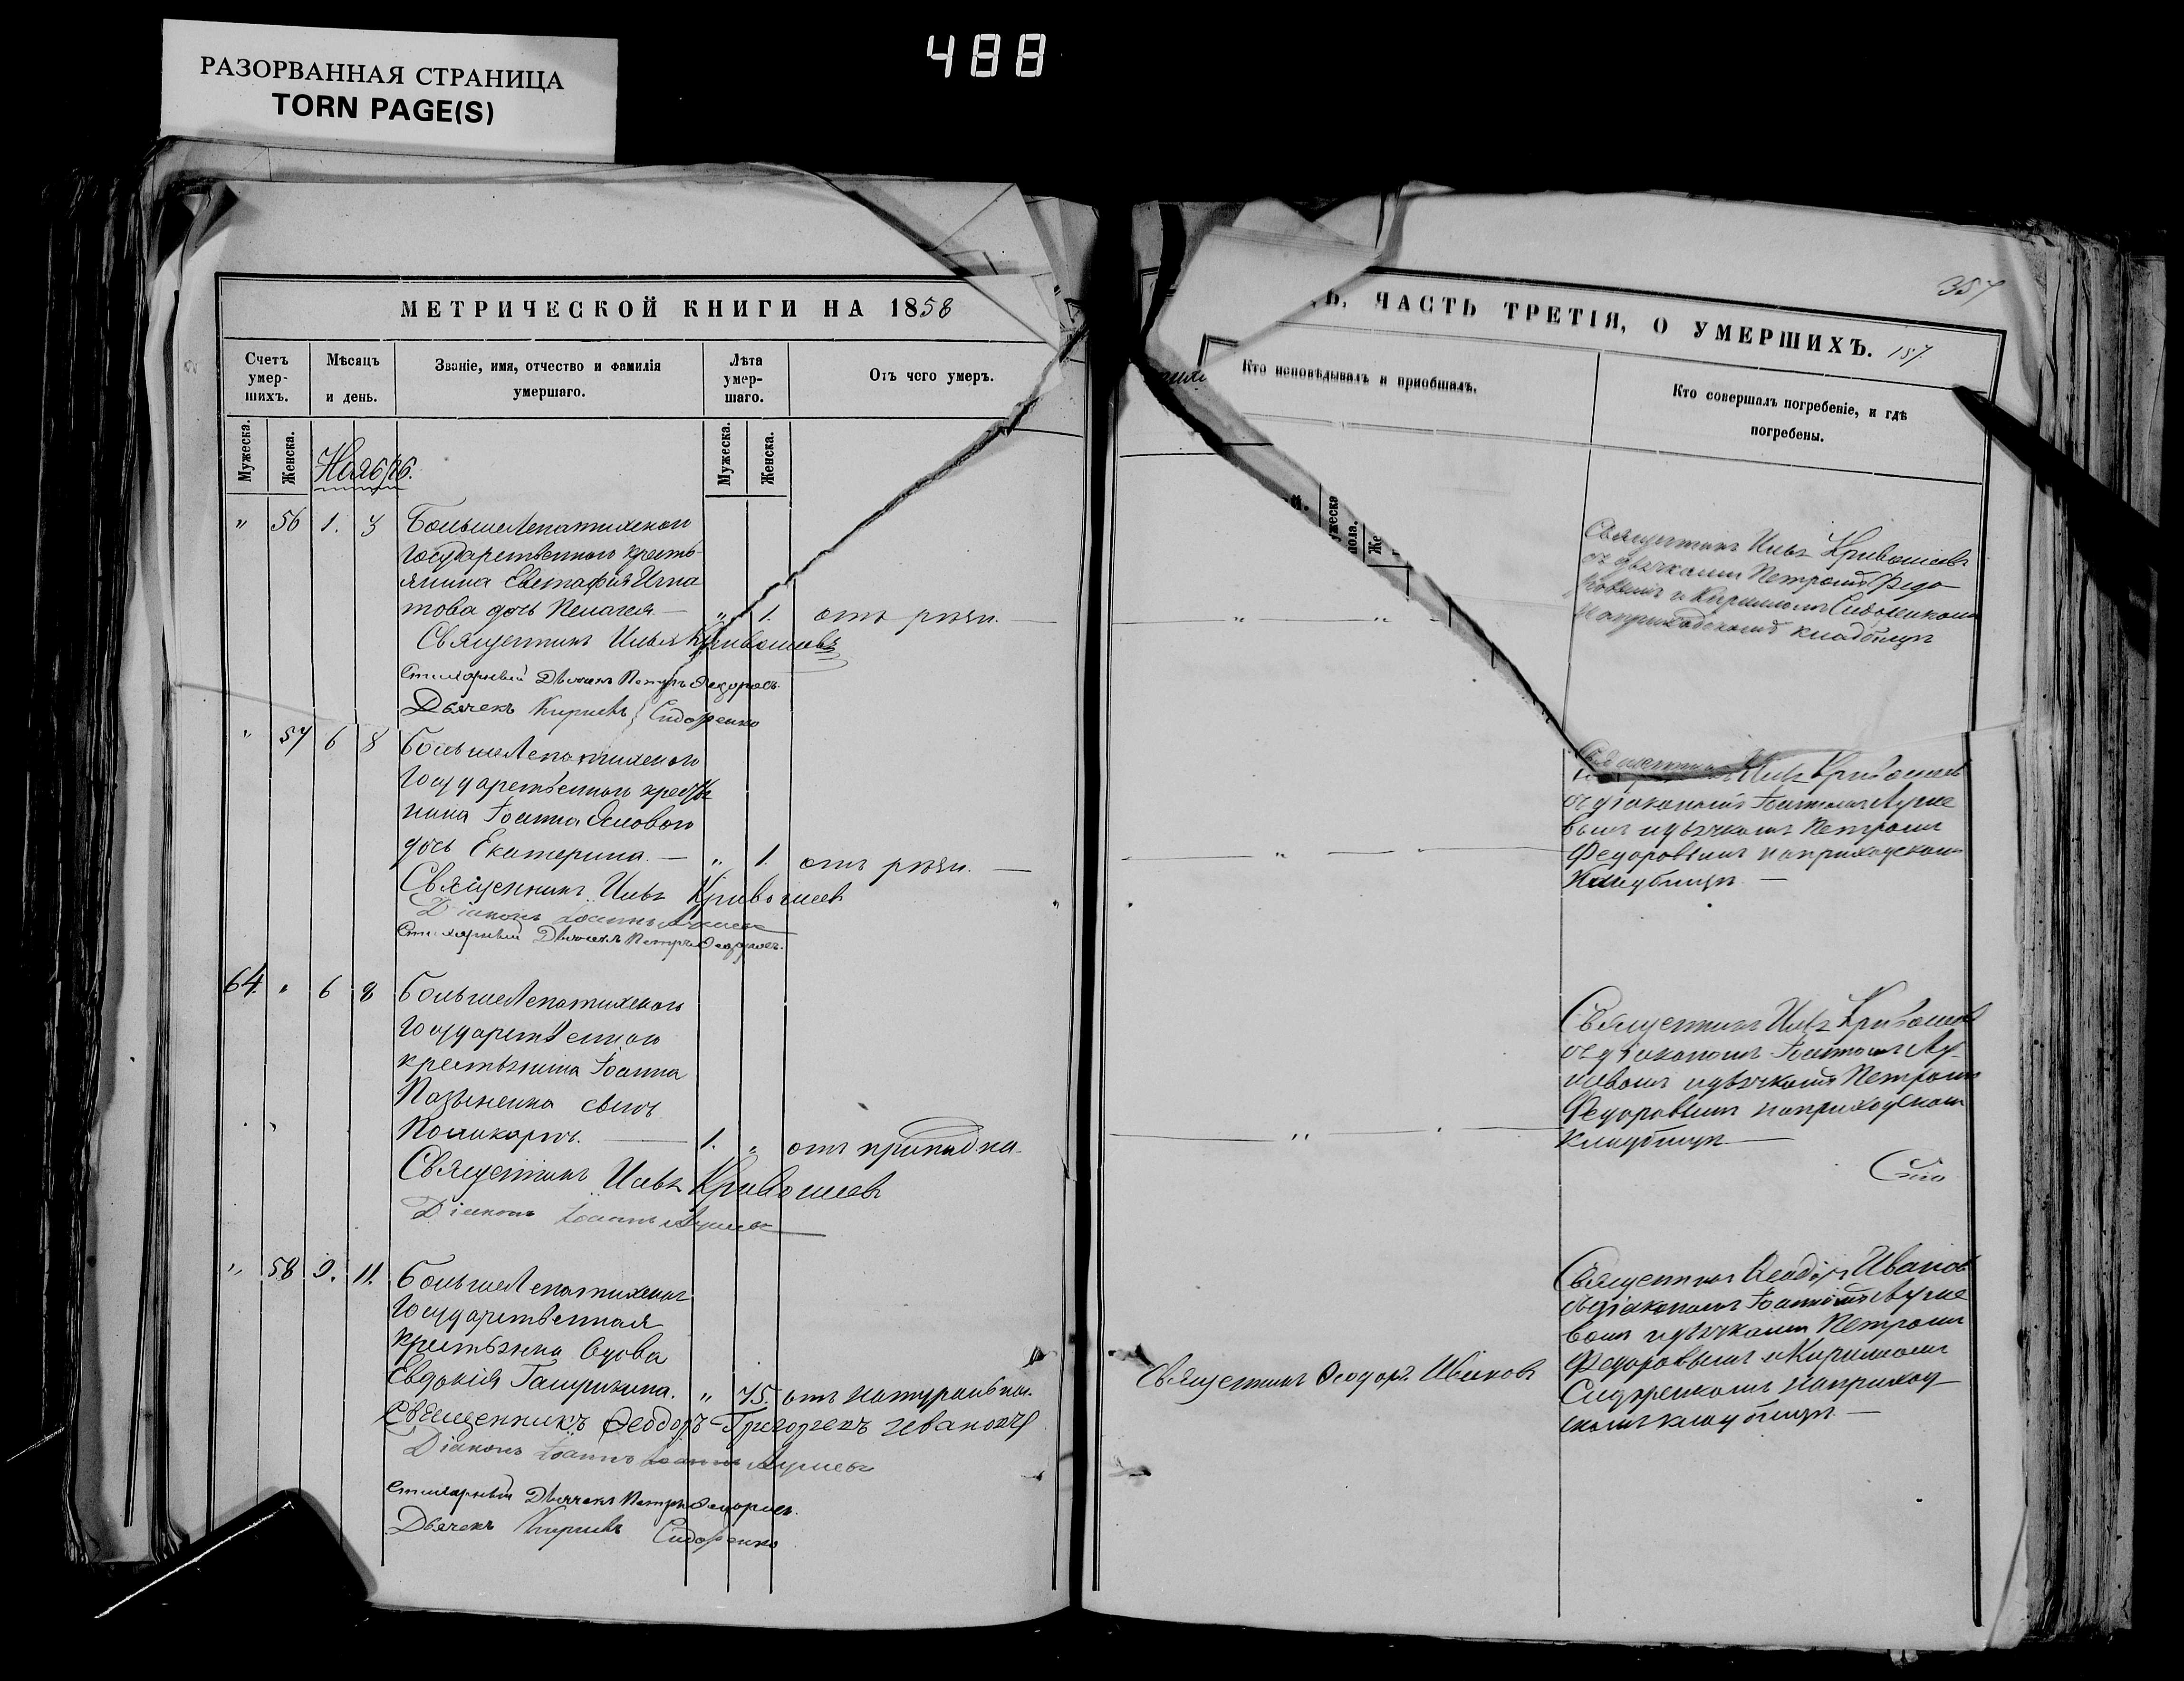 488
РАЗОРВАННАЯ СТРАНИЦА
TORN PAGE(S)
МЕТРИЧЕСКОЙ КНИГИ НА 1858
Счетъ умер-шихъ.
Мѣсяцъ и день.
Званіе, имя, отчество и фамилія умершаго.
Лѣта умер-шаго.
Отъ чего умеръ.
Мужеска.
Женска.
Мужеска.
Женска.
Ноябрь.
" 56 1. 3 Большелепатихскаго
Государственнаго кресть-
янина Евстафія Игна
това дочь Пелагея. — " 1. отъ рѣзи. —
Священникъ Илья Кривошеевъ
Стихарный Дьячекъ Петръ Ѳедоровъ.
Дьячекъ Кирилъ Сидоренко
" 57 6 8 Большелепатихскаго
Государственнаго крестья
нина Іоанна
дочь Екатерина. — " 1. отъ рѣзи. —
Священникъ Илья Кривошеев
Діаконъ Іоаннъ
Стихарный Дьячекъ Петръ Ѳедоровъ.
64. " 6 8 Большелепатихскаго
Государственнаго
крестьянина Іоанна
сынъ
Поликарпъ. — 1. " отъ
Священникъ Илья Кривошеев
Діаконъ Іоаннъ
" 58 9. 11. Большелепатихская
Государственная
крестьянка вдова
Евдокія " 75. отъ
Священникъ Ѳеодоръ Григорьевъ Ивановъ
Діаконъ Іоаннъ
Стихарный Дьячекъ Петръ Ѳедоровъ.
Дьячекъ Кирилъ Сидоренко
357
Ь, ЧАСТЬ ТРЕТІЯ, О УМЕРШИХЪ. 157
Кто исповѣдывалъ и приобщалъ.
Кто совершалъ погребеніе, и гдѣ погребены.
Священникъ Илья Кривошеевъ
съ дьячками Петромъ Федо
ровымъ и Кирилломъ Сидоренкомъ
на приходскомъ кладбищѣ
Священникъ Илья Кривошеевъ
съ діакономъ Іоанномъ
вымъ и дьячкомъ Петромъ
Федоровымъ на приходскомъ
Кладбищѣ —
Священникъ Илья Кривошеевъ
съ діакономъ Іоанномъ
и дьячкомъ Петромъ
Федоровымъ на приходскомъ
кладбищѣ —
Священникъ Ѳеодоръ Ивановъ
Священникъ Ѳеодоръ Ивановъ
съ діакономъ Іоанномъ
вымъ и дьячками Петромъ
Федоровымъ и Кирилломъ
Сидоренкомъ на приход-
скомъ кладбищѣ. —